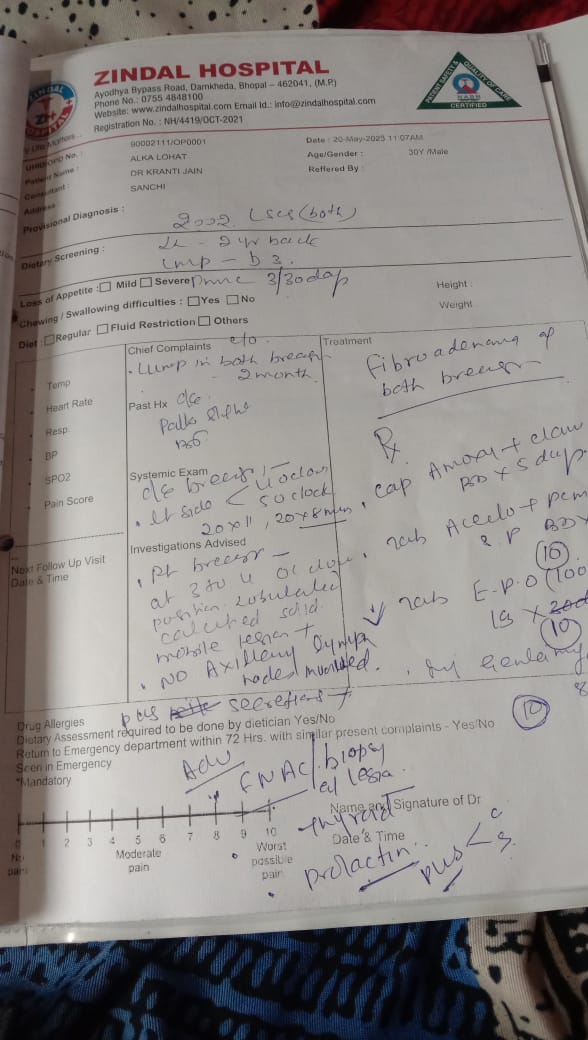 ZINDAL HOSPITAL
Ayodhya Bypass Road, Damkheda, Bhopal – 462041, (M.P)
Phone No.: 0755 4848100
Website: www.zindalhospital.com Email Id.: info@zindalhospital.com
Registration No. : NH/4419/OCT-2021
CERTIFIED
90002111/OP0001
Date : 20-May-2025 11:07AM
Patient Name :
ALKA LOHAT
Age/Gender :
30Y /Male
Consultant :
DR KRANTI JAIN
Reffered By :
Address :
SANCHI
Provisional Diagnosis :
LSCS (both)
Dietary Screening :
2 yr back
LMP – 3
Loss of Appetite : Mild Severe
3/30 dap
Height :
Chewing / Swallowing difficulties : Yes No
Weight
Diet : Regular Fluid Restriction Others
Chief Complaints c/o
Treatment
Lump in both breast
- 2 month
Fibroadenoma of
both breast
Temp
Heart Rate
Past Hx
Resp
Rx
BP
SPO2
Systemic Exam
cap Amoxy + clav
BD x 5 days
Pain Score
o/e breast
Lt side < 4 oclock
5 oclock
20x11, 20x8mm
Next Follow Up Visit
Date & Time
Investigations Advised
Rt breast –
at 3 to 4 oclock
position, lobulated
calcified solid
mobile
tab Aceclo + pcm
BD x
(10)
tab E.P.O (100
(10)
NO Axillary lymph
nodes involved.
pus secretions +
(10)
Drug Allergies
Dietary Assessment required to be done by dietician Yes/No
Return to Emergency department within 72 Hrs. with similar present complaints - Yes/No
Seen in Emergency
*Mandatory
Adv
FNAC/biopsy
of
Name and Signature of Dr
0 1 2 3 4 5 6 7 8 9 10
No pain
Moderate pain
Worst possible pain
Thyroid
Date & Time
prolactin
pus < c
s